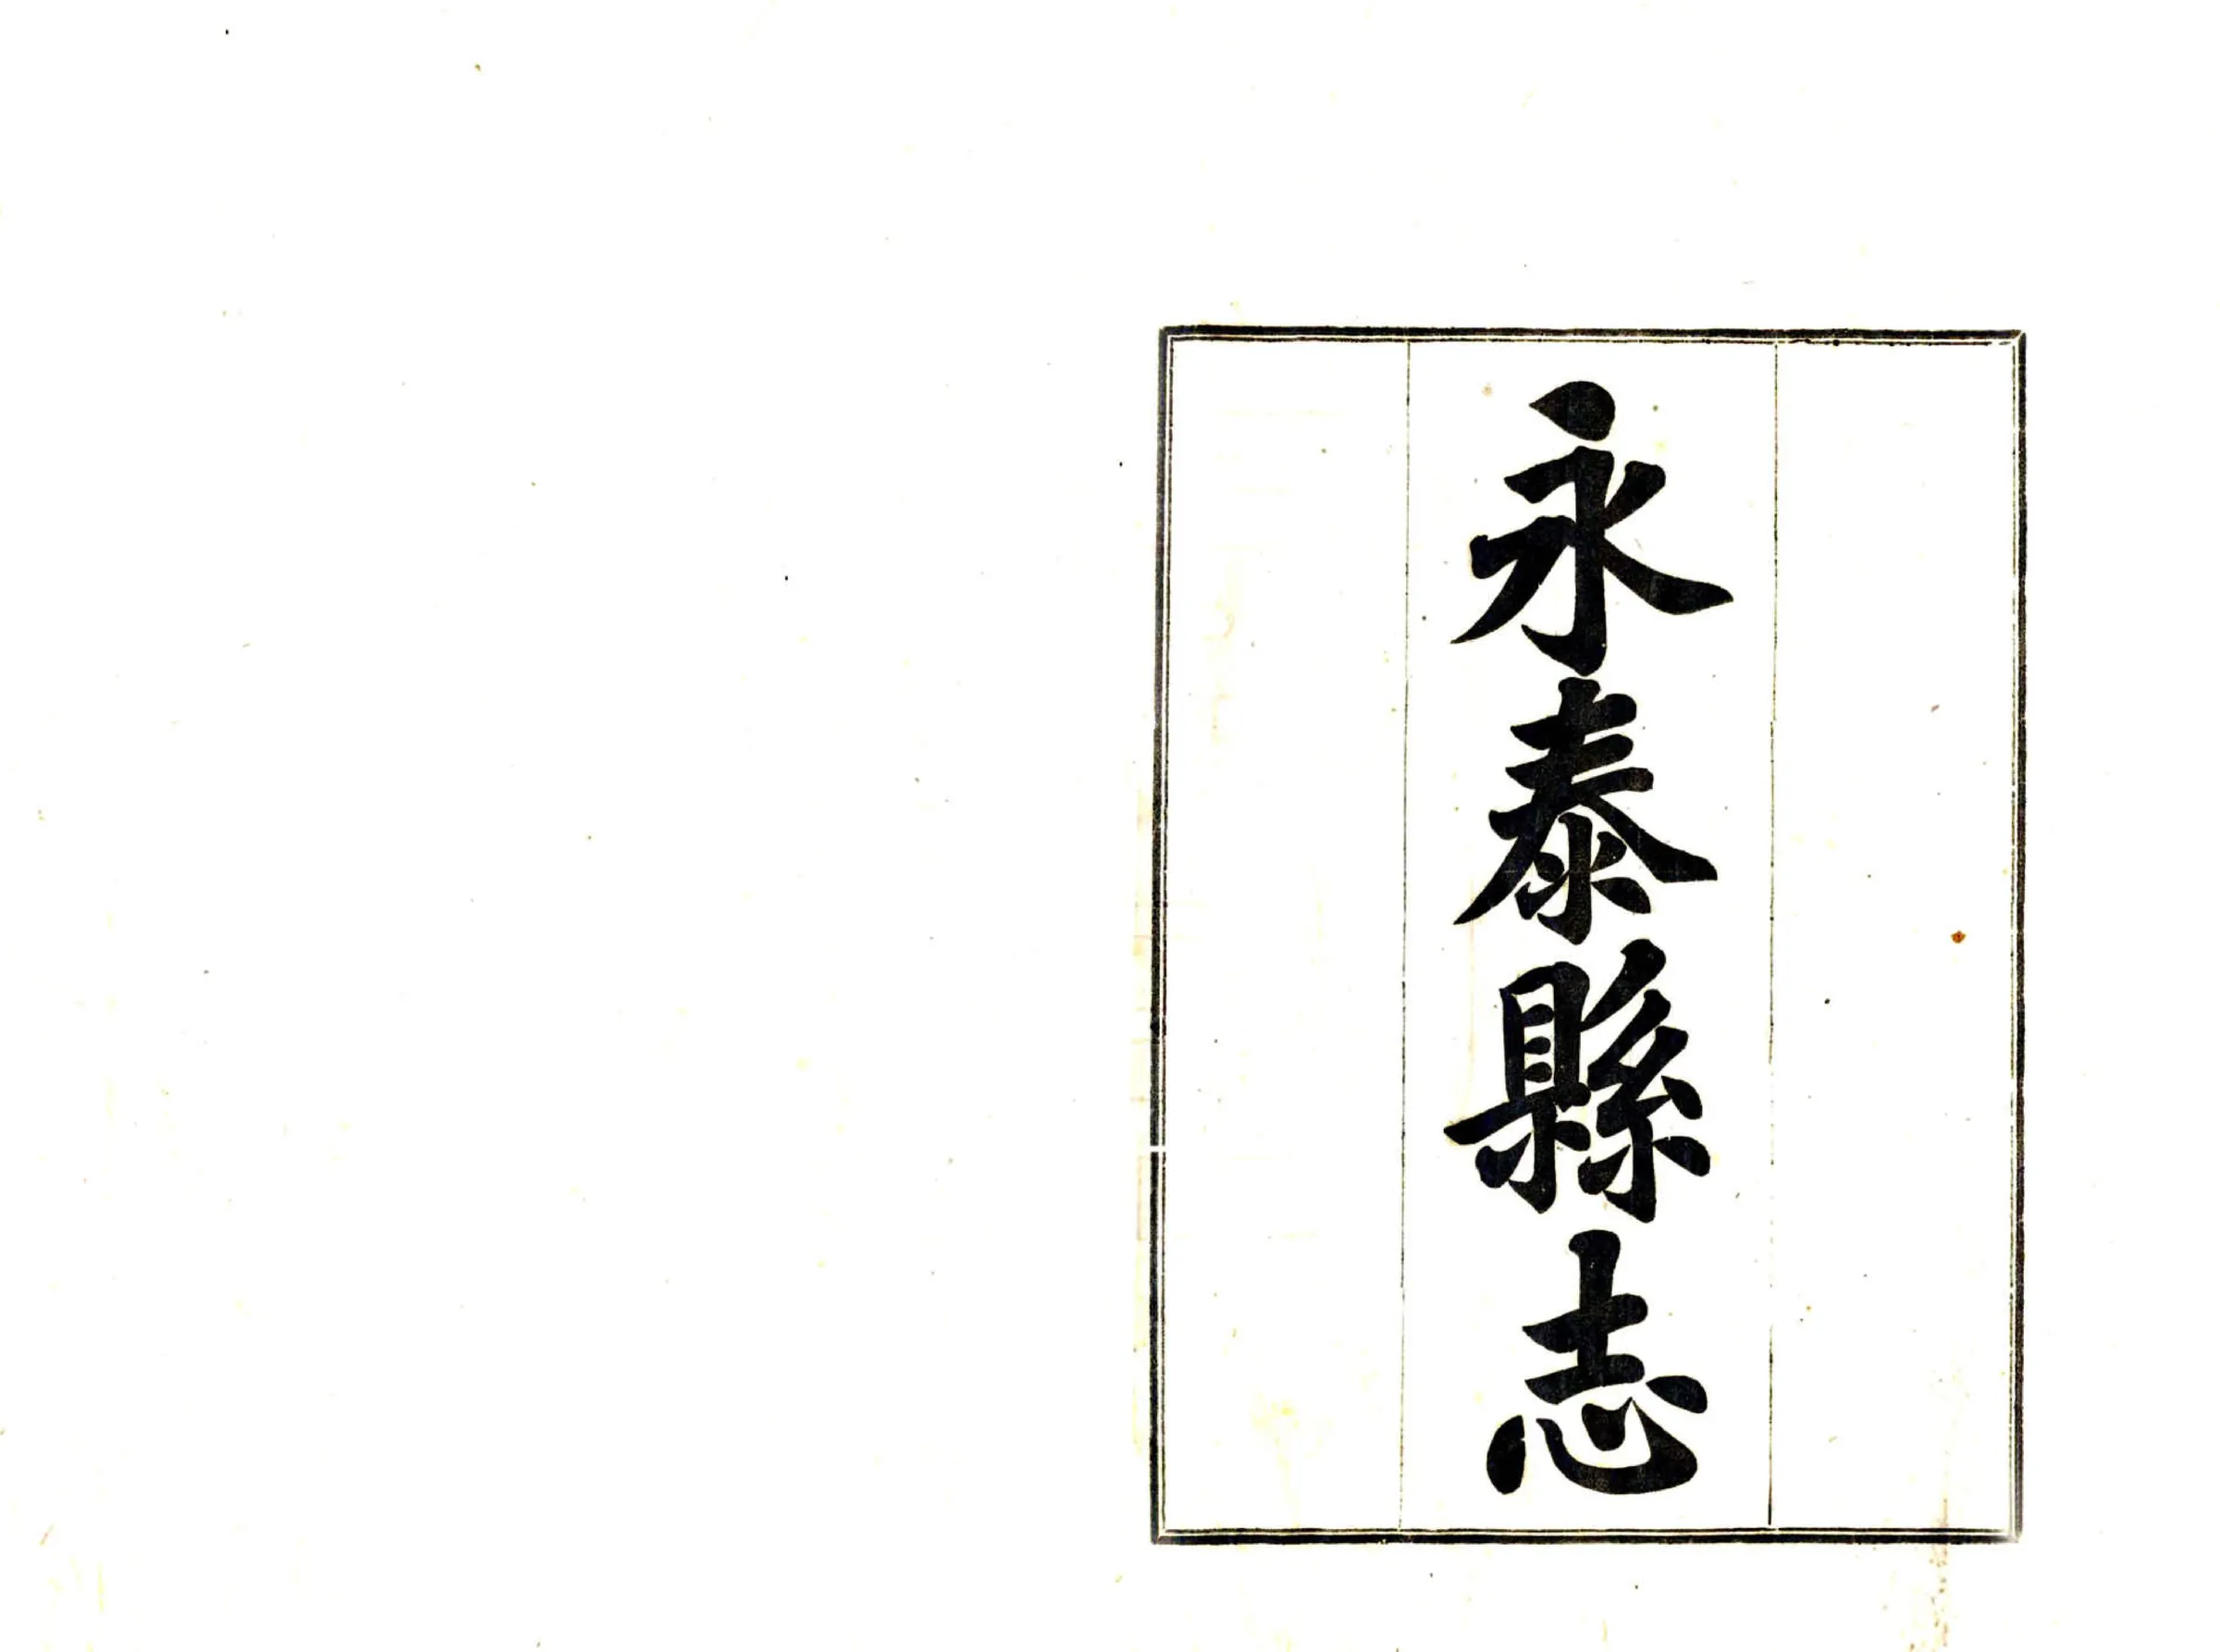 永泰縣志